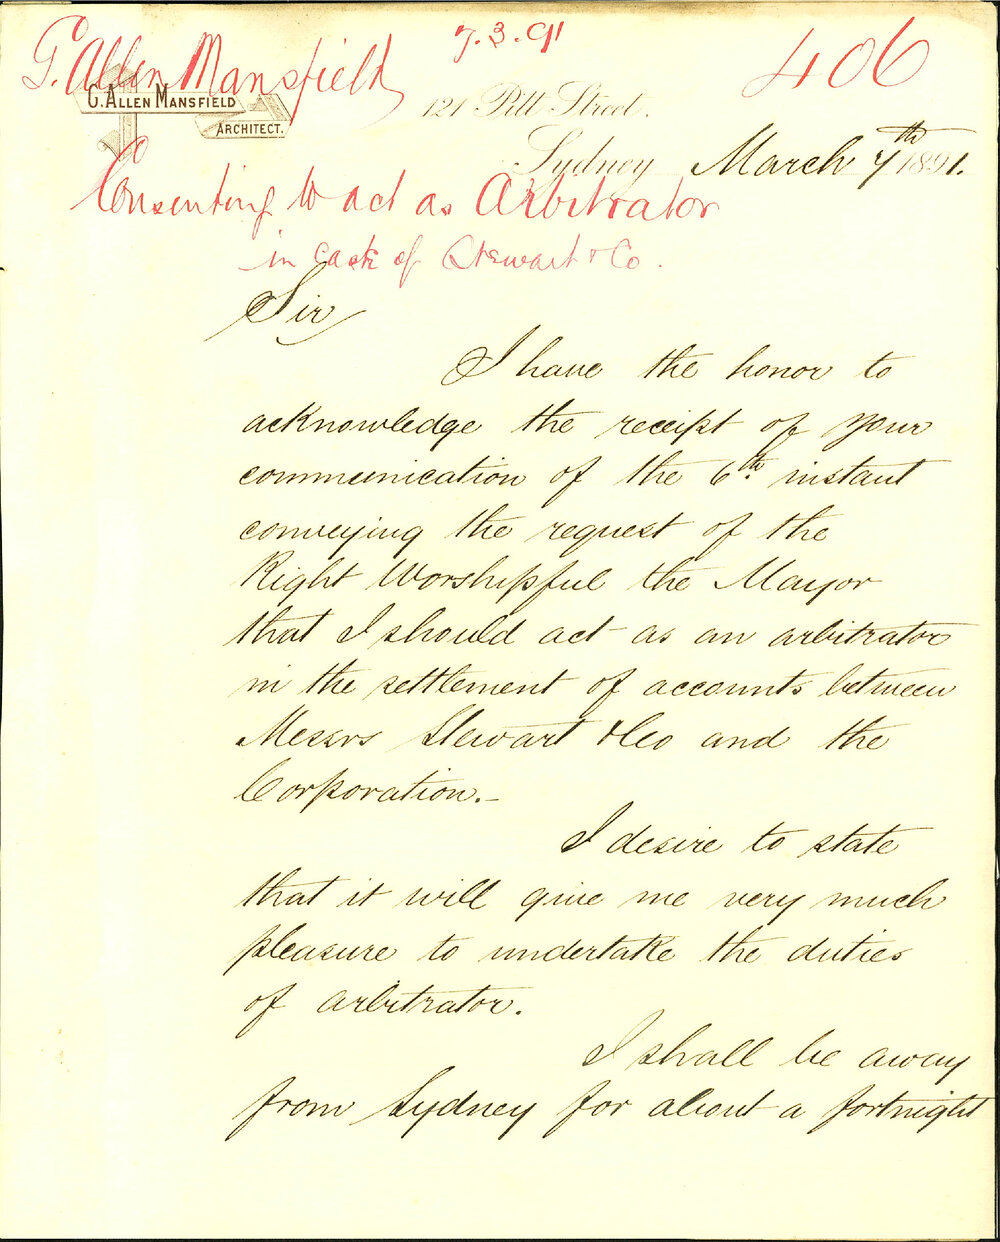 G. Allen Mansfield
7.3.91
406
G. ALLEN MANSFIELD
ARCHITECT.
121 Pitt Street.
Sydney March 7th 1891.
Consenting to act as Arbitrator
in case of Stewart & Co.
Sir
I have the honor to
acknowledge the receipt of your
communication of the 6th. instant
conveying the request of the
Right Worshipful the Mayor
that I should act as an arbitrator
in the settlement of accounts between
Messrs Stewart & Co and the
Corporation.-
I desire to state
that it will give me very much
pleasure to undertake the duties
of arbitrator.
I shall be away
from Sydney for about a fortnight